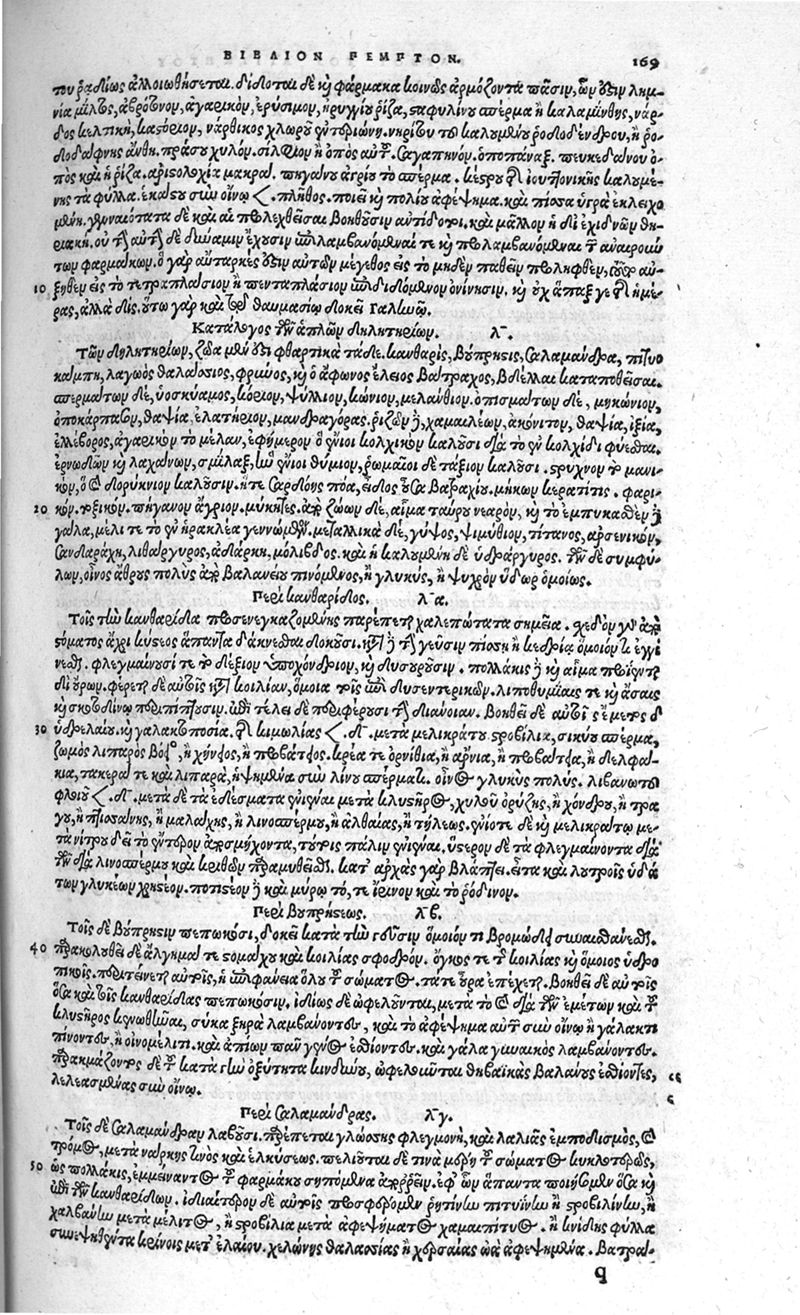 ΒΙΒΛΙΟΝ ΠΕΜΠΤΟΝ. 169
του ῥαδίως ἀλλοιωθήσεται. δίδοται δὲ καὶ φάρμακα κοινῶς ἁρμόζοντα πᾶσιν, ὧν ὅλιν λημ-
νία μίλτος, ἀβρότονον, ἀγαρικὸν, ἐρύσιμον, ἠρυγγίου ῥίζα, σταφυλίνου σπέρμα ἢ καλαμίνθης, νάρ-
δος κελτικὴ, καστόριον, νάρθηκος χλωροῦ ἐντεριώνη. νηρίου τοῦ καλουμένου ῥοδοδένδρου, ἢ ῥο-
δοδάφνης ἄνθη. πράσου χυλὸν. σίλφιον ἢ ὀπὸς αὐτοῦ. σαγαπηνὸν. ὀποπάναξ. πευκεδάνου ὀ-
πὸς καὶ ἡ ῥίζα. ἀριστολοχία μακρά. πηγάνου ἀγρίου τὸ σπέρμα. κέστρου τῆς βετονικῆς καλουμέ-
νης τὰ φύλλα. ἑκάστου σὺν οἴνῳ <. πλῆθος. ποιεῖ καὶ πολίου ἀφέψημα. καὶ πίσσα ὑγρὰ ἐκλειχο
μένη. γενναιότατα δὲ καὶ αἱ προλεχθεῖσαι βοηθοῦσιν ἀντίδοτοι. καὶ μᾶλλον ἡ δι' ἐχιδνῶν θη-
ριακή. οὐ τὴν αὐτὴν δὲ δύναμιν ἔχουσιν ἐπιλαμβανόμεναί τε καὶ προλαμβανόμεναι τῶν ἀναιρούν
των φαρμάκων. ὃ γὰρ αὔταρκές ἐστιν αὐτῶν μέγεθος εἰς τὸ μηδὲν παθεῖν προληφθὲν, τοῦτο αὐ-
10 ξηθὲν εἰς τὸ τετραπλάσιον ἢ πενταπλάσιον ἐπιδιδόμενον ὀνίνησιν. καὶ οὐχ ἅπαξ γε τῆς ἡμέ-
ρας, ἀλλὰ δίς. οὕτω γὰρ καὶ τῷ θαυμασίῳ δοκεῖ Γαληνῷ.
Κατάλογος τῶν ἁπλῶν δηλητηρίων. λ.
Τῶν δηλητηρίων, ζῶα μὲν ἐστι φθαρτικὰ τάδε. κανθαρὶς, βύπρησις, σαλαμάνδρα, πιτυο
κάμπη, λαγωὸς θαλάσσιος, φρῦνος, καὶ ὁ ἄφωνος ἕλειος βάτραχος, βδέλλαι καταποθεῖσαι.
σπερμάτων δὲ, ὑοσκύαμος, κόριον, ψύλλιον, κώνιον, μελάνθιον. ὀπισμάτων δὲ, μηκώνιον,
ὀποκάρπασον, θαψία, ἐλατήριον, μανδραγόρας. ῥιζῶν δὲ, χαμαιλέων, ἀκόνιτον, θαψία, ἰξία,
ἐλλέβορος, ἀγαρικὸν τὸ μέλαν, ἐφήμερον ὃ ἔνιοι κολχικὸν καλοῦσι διὰ τὸ ἐν κολχίδι φύεσθαι.
ἐρνωδῶν καὶ λαχάνων, σμίλαξ, ἣν ἔνιοι θύμιον, ῥωμαῖοι δὲ τάξιον καλοῦσι. στρύχνον τὸ μανι-
κὸν, ὃ καὶ δορύκνιον καλοῦσιν. ἥτε Σαρδόνης πόα, εἶδος οὖσα βατραχίου. μήκων κερατῖτις. φαρι-
20 κὸν. τοξικὸν. πήγανον ἄγριον. μύκητες. ἀπὸ ζώων δὲ, αἷμα ταύρου νεαρὸν, καὶ τὸ ἐμπυκασθὲν
γάλα, μέλι τε τὸ ἐν ἡρακλέᾳ γεννώμενον. μεταλλικὰ δὲ, γύψος, ψιμύθιον, τίτανος, ἀρσενικὸν,
σανδαράχη, λιθάργυρος, ἀδάρκη, μόλιβδος. καὶ ἡ καλουμένη δὲ ὑδράργυρος. τῶν δὲ συμφύ-
λων, οἶνος ἄθρους πολὺς ἀπὸ βαλανείου πινόμενος, ἢ γλυκὺς, ἢ ψυχρὸν ὕδωρ ὁμοίως.
Περὶ κανθαρίδος. λα.
Τοῖς τὴν κανθαρίδα προσενεγκαμένοις παρέπεται χαλεπώτατα σημεῖα. σχεδὸν γὰρ ἀπὸ
στόματος ἄχρι κύστεως ἅπαντα δάκνεσθαι δοκοῦσι. κατὰ δὲ τὴν γεῦσιν πίσσῃ ἢ κεδρίᾳ ὅμοιόν τι ἐγγί
νεται. φλεγμαίνουσί τε τὸ δεξιὸν ὑποχόνδριον, καὶ δυσουροῦσιν. πολλάκις δὲ καὶ αἷμα προΐενται
δι' οὔρων. φέρεται δὲ αὐτοῖς κατὰ κοιλίαν, ὅμοια τοῖς ἐπὶ δυσεντερικῶν. λιποθυμίαις τε καὶ ἄσαις
καὶ σκοτοδίνῳ περιπίπτουσιν. ἐπὶ τέλει δὲ παραφέρουσι τὴν διάνοιαν. βοηθεῖ δὲ αὐτοῖς ἔμετος δι'
30 ὑδρελαίου. καὶ γαλακτοποσία. τῆς κιμωλίας <. δ. μετὰ μελικράτου στροβίλια, σικύου σπέρμα,
ζωμὸς λιπαρὸς βοὸς, ἢ χηνὸς, ἢ προβάτου. κρέα τε ὀρνίθια, ἢ ἄρνια, ἢ προβάτια, ἢ δελφά-
κια, τακερά τε καὶ λιπαρὰ, ἡψημένα σὺν λίνου σπέρματι. οἶνος γλυκὺς πολύς. λιβανωτοῦ
φλοιοῦ <. δ. μετὰ δὲ τὰ ἐδέσματα ἐνιέναι μετὰ κλυστῆρος, χυλοῦ ὀρύζης, ἢ χόνδρου, ἢ τρά
γου, ἢ πτισάνης, ἢ μαλάχης, ἢ λινοσπέρμου, ἢ ἀλθαίας, ἢ τήλεως. ἐνίοτε δὲ καὶ μελικράτῳ με-
τὰ νίτρου δεῖ τὸ ἔντερον ἀποσμήχοντα, τούτοις πάλιν ἐνιέναι. ὕστερον δὲ τὰ φλεγμαίνοντα διὰ
τῶν διὰ λινοσπέρμου καὶ κριθῶν παραμυθεῖσθαι. κατ' ἀρχὰς γὰρ βλάπτει. εἶτα καὶ λουτροῖς ὑδά
των γλυκέων χρηστέον. ποτιστέον δὲ καὶ μύρῳ τό, τε ἴρινον καὶ τὸ ῥόδινον.
Περὶ βυπρήσεως. λβ.
Τοῖς δὲ βύπρησιν πεπωκόσι, δοκεῖ κατὰ τὴν γεῦσιν ὅμοιόν τι βρομώδει συναισθάνεσθαι.
40 παρακολουθεῖ δὲ ἄλγημά τε στομάχου καὶ κοιλίας σφοδρὸν. ὄγκος τε τῆς κοιλίας καὶ ὅμοιος ὑδρω
πικοῖς. περιτείνεται αὐτοῖς, ἡ ἐπιφάνεια ὅλου τοῦ σώματος. τά τε οὖρα ἐπέχεται. βοηθεῖ δὲ αὐτοῖς
ὅσα καὶ τοῖς κανθαρίδας πεπωκόσιν. ἰδίως δὲ ὠφελοῦνται, μετὰ τὸ διὰ τῶν ἐμέτων καὶ τοῦ
κλυστῆρος κενωθῆναι, σύκα ξηρὰ λαμβάνοντες, καὶ τὸ ἀφέψημα αὐτῶν σὺν οἴνῳ ἢ γάλακτι
πίνοντες, ἢ οἰνομέλιτι. καὶ ἀπίων πᾶν γένος ἐσθίοντες. καὶ γάλα γυναικὸς λαμβάνοντες.
παρακμάζοντος δὲ τοῦ κατὰ τὴν ὀξύτητα κινδύνου, ὠφελοῦνται θηβαϊκὰς βαλάνους ἐσθίοντες,
λελεασμένας σὺν οἴνῳ.
Περὶ σαλαμάνδρας. λγ.
Τοῖς δὲ σαλαμάνδραν λαβοῦσι. παρέπεται γλώσσης φλεγμονὴ, καὶ λαλιᾶς ἐμποδισμὸς, καὶ
τρόμος, μετὰ νάρκης τινὸς καὶ ἑλκύσεως. πελιοῦται δὲ τινὰ μέρη τοῦ σώματος κυκλοτερῶς,
50 ὡς πολλάκις, ἐμμείναντος τοῦ φαρμάκου σηπόμενα ἀπορρεῖν. ἐφ' ὧν ἅπαντα ποιήσομεν ὅσα καὶ
ἐπὶ τῶν κανθαρίδων. ἰδιαίτερον δὲ αὐτοῖς προσφέρομεν ῥητίνην πιτυΐνην ἢ στροβιλίνην, ἢ
χαλβάνην μετὰ μέλιτος, ἢ στροβίλια μετὰ ἀφεψήματος χαμαιπίτυος. ἢ κνίδης φύλλα
συνεψηθέντα κρίνοις μετ' ἐλαίου. χελώνης θαλασσίας ἢ χερσαίας ὠὰ ἀφεψημένα. βατρά-
q